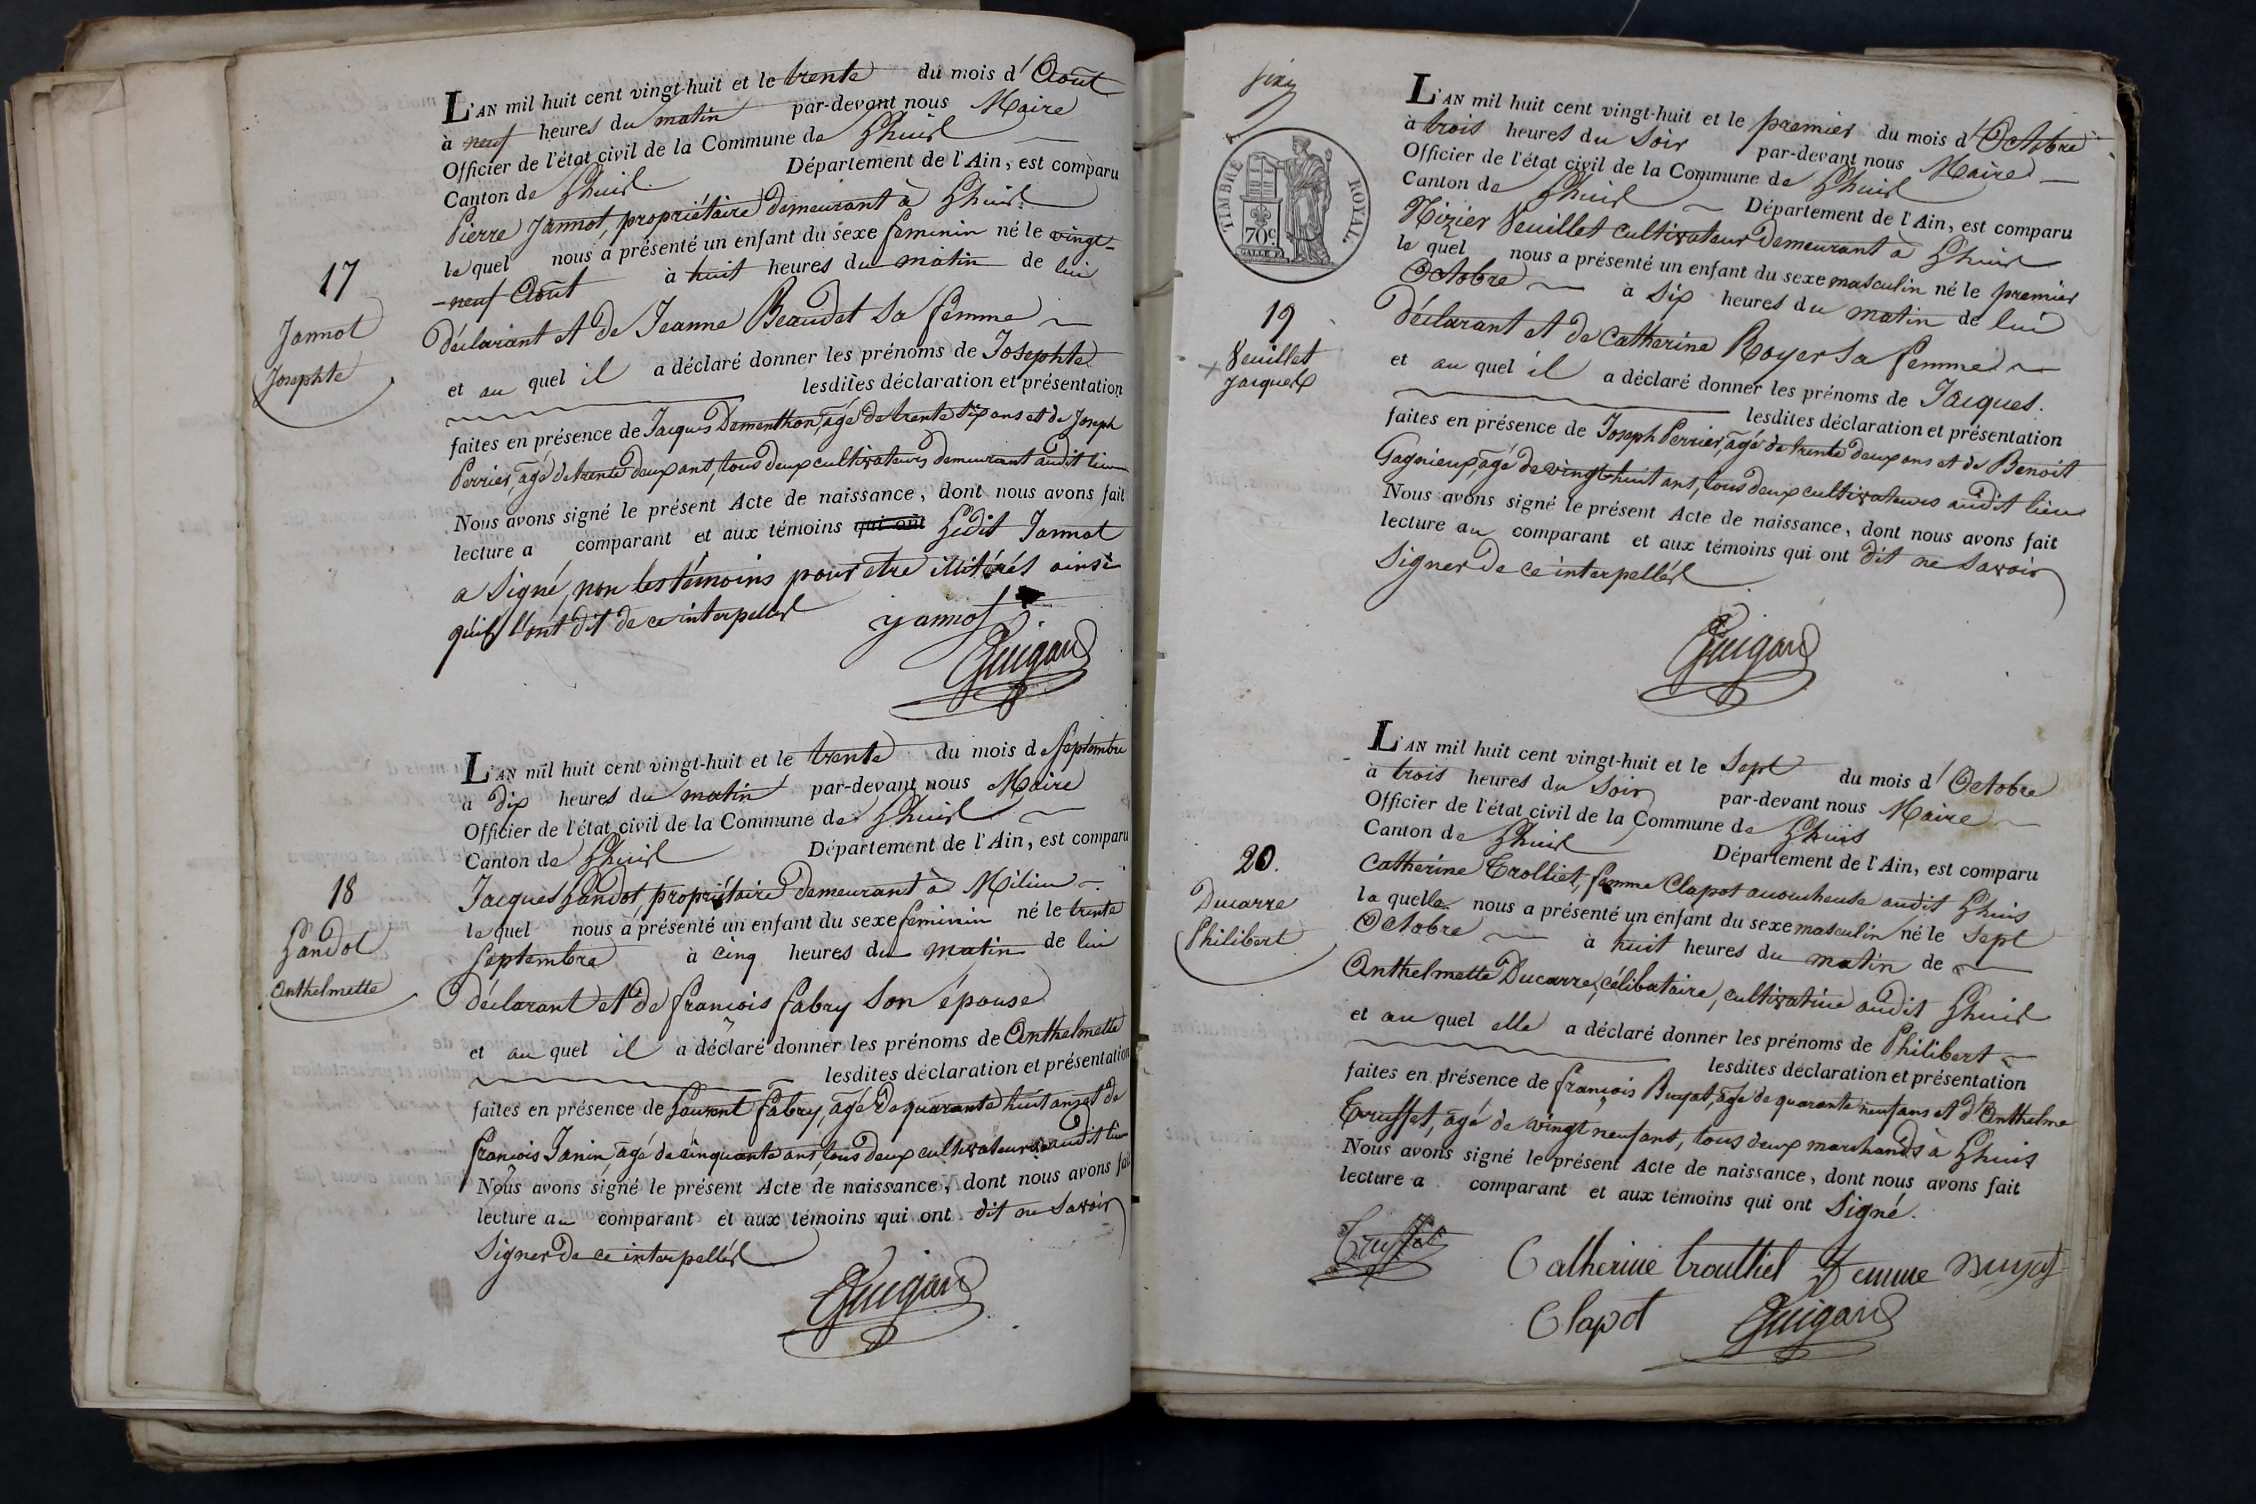 L'AN mil huit cent vingt-huit et le trente du mois d'Août
à neuf heures du matin par-devant nous Maire
Officier de l'état civil de la Commune de Lhuis
Canton de Lhuis Département de l'Ain, est comparu
Pierre Jannot, propriétaire demeurant à Lhuis
le quel nous a présenté un enfant du sexe feminin né le vingt-
-neuf Août à huit heures du matin de lui
déclarant et de Jeanne Beaudet sa femme
et au quel il a déclaré donner les prénoms de Josephte
lesdites déclaration et présentation
faites en présence de Jacques Dementhon, âgé de trente six ans et de Joseph
Perrier, âgé de trente deux ans, tous deux cultivateurs demeurant audit lieu
Nous avons signé le présent Acte de naissance, dont nous avons fait
lecture a comparant et aux témoins qui ont Ledit Jannot
a signé, non les témoins pour etre illitérés ainsi
qu'ils l'ont dit de ce interpellés
yannot
Guigard
17
Jannot
Josephte
L'AN mil huit cent vingt-huit et le trente du mois de Septembre
a dix heures du matin par-devant nous Maire
Officier de l'état civil de la Commune de Lhuis
Canton de Lhuis Département de l'Ain, est comparu
Jacques Landot, propriétaire demeurant à Milieu
le quel nous a présenté un enfant du sexe feminin né le trente
Septembre à cinq heures du matin de lui
déclarant et de françois fabry son épouse
et au quel il a déclaré donner les prénoms de Anthelmette
lesdites déclaration et présentation
faites en présence de Laurent fabry, âgé de quarante huit ans et de
françois Janin, âgé de cinquante ans, tous deux cultivateurs audit lieu
Nous avons signé le présent Acte de naissance, dont nous avons fait
lecture au comparant et aux témoins qui ont dit ne savoir
signer de ce interpellés
Guigard
18
Landot
Anthelmette
TIMBRE ROYAL
70c
L'AN mil huit cent vingt-huit et le premier du mois d'Octobre
à trois heures du soir par-devant nous Maire
Officier de l'état civil de la Commune de Lhuis
Canton de Lhuis Département de l'Ain, est comparu
Nizier Veuillet cultivateur demeurant à Lhuis
le quel nous a présenté un enfant du sexe masculin né le premier
Octobre à six heures du matin de lui
déclarant et de Catherine Royer sa femme
et au quel il a déclaré donner les prénoms de Jacques.
lesdites déclaration et présentation
faites en présence de Joseph Perrier, âgé de trente deux ans et de Benoit
Gagnieux, âgé de vingt-huit ans, tous deux cultivateurs audit lieu
Nous avons signé le présent Acte de naissance, dont nous avons fait
lecture au comparant et aux témoins qui ont dit ne savoir
signer de ce interpellés
Guigard
19
Veuillet
Jacques
L'AN mil huit cent vingt-huit et le sept du mois d'Octobre
à trois heures du soir par-devant nous Maire
Officier de l'état civil de la Commune de Lhuis
Canton de Lhuis Département de l'Ain, est comparu
Catherine Trolliet, femme Clapot accoucheuse audit Lhuis
la quelle nous a présenté un enfant du sexe masculin né le sept
Octobre à huit heures du matin de
Anthelmette Ducarre, célibataire, cultivatrice audit Lhuis
et au quel elle a déclaré donner les prénoms de Philibert
lesdites déclaration et présentation
faites en présence de françois Buyat, âgé de quarante neuf ans et d'Anthelme
Truffet, âgé de vingt neuf ans, tous deux marchands à Lhuis
Nous avons signé le présent Acte de naissance, dont nous avons fait
lecture a comparant et aux témoins qui ont signé.
Truffet
Catherine trouttiet Femme Buyat
Clapot Guigard
20.
Ducarre
Philibert